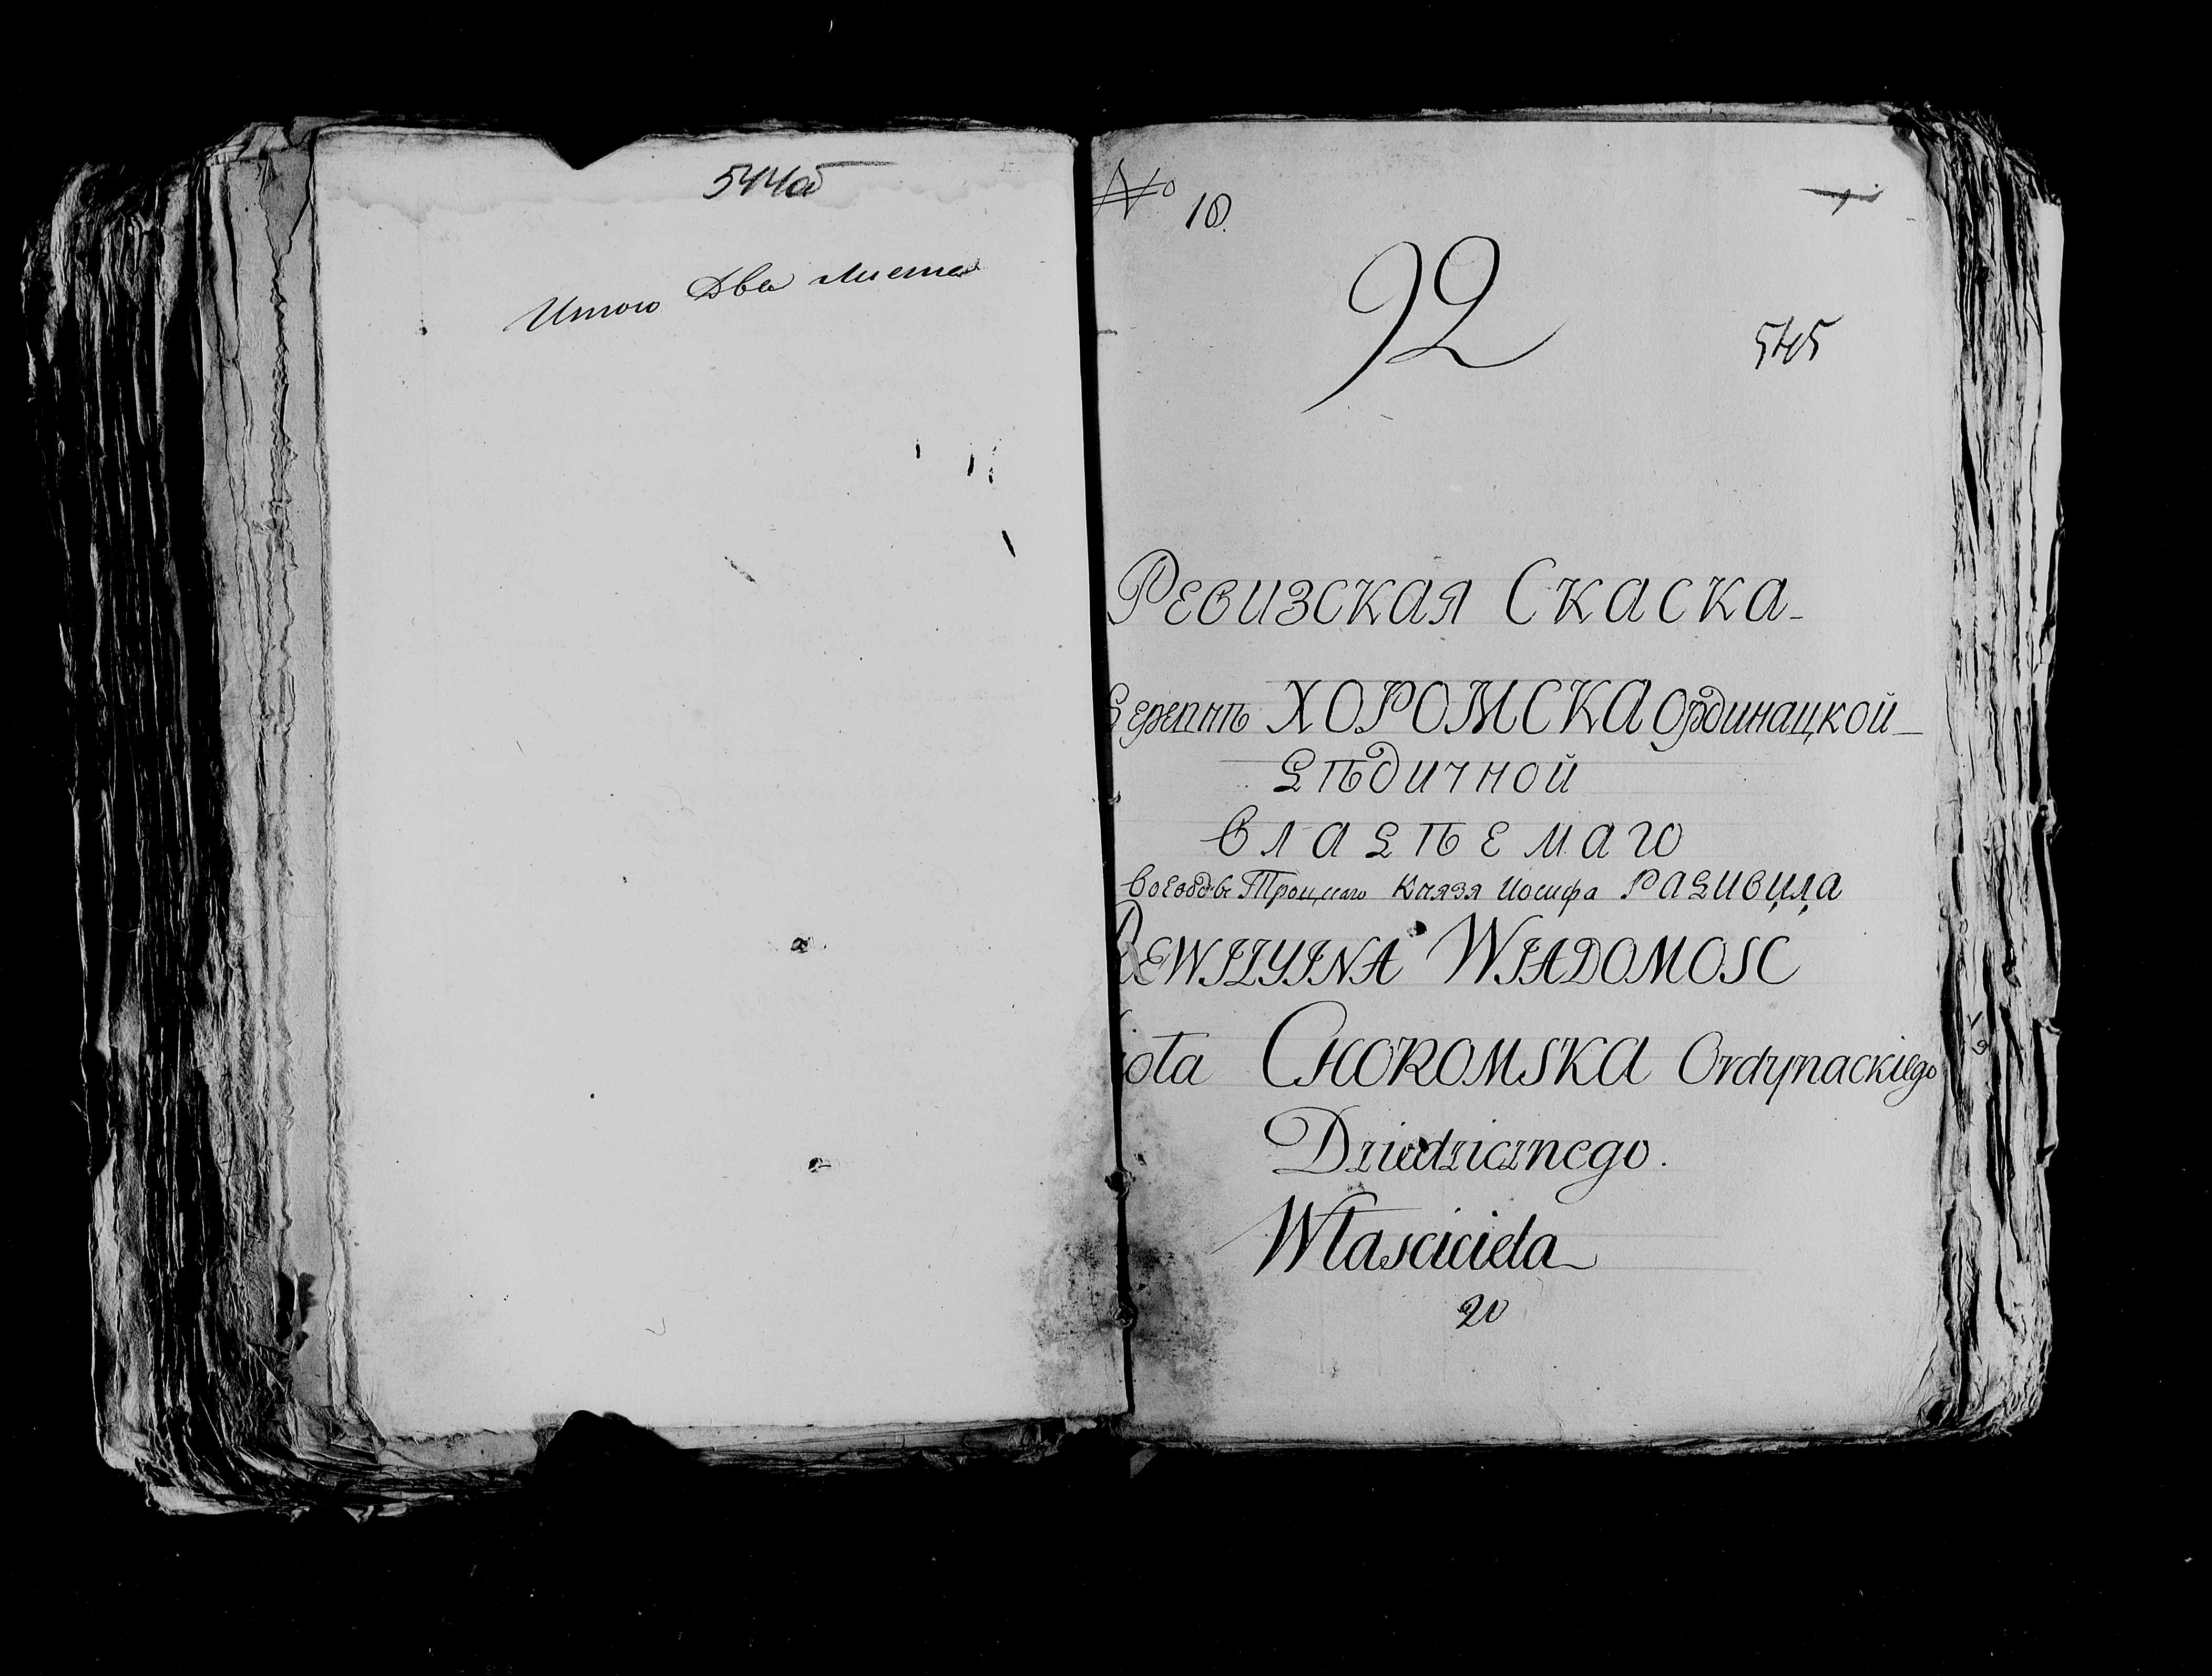 544об
Итого Два листа
№ 10.
92
545
Ревизская Скаска
Деревнѣ ХОРОМСКА Ординацкой
Дѣдичной
владѣемаго
Воеводы Троцкаго Князя Иосифа РАДИВИЛА
REWIZYINA WIADOMOSC
CHOROMSKA Ordynackiego
Dziedzicznego.
Własciciela
20